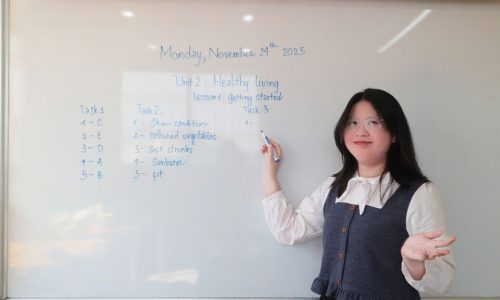 Monday, November 24th 2025
Unit 2 - Healthy living
Lesson 1 Getting started
Task 1 Task 2 Task 3
1 - C 1 - Skin condition 1 -
2 - E 2 - Coloured vegetables
3 - D 3 - Soft drinks
4 - A 4 - Sunburn
5 - B 5 - fit